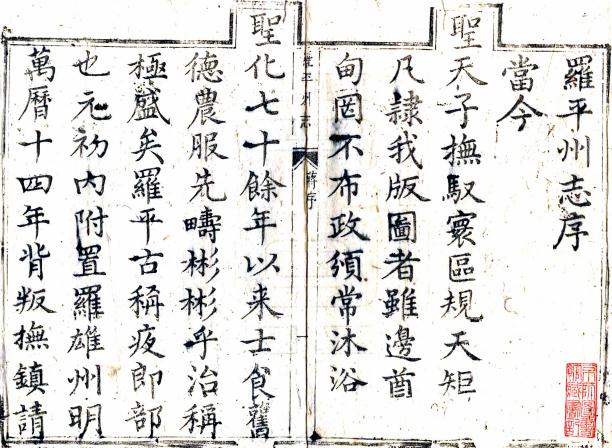 羅平州志序
當今
聖天子撫馭寰區規天矩
凡隸我版圖者雖邊酋
甸罔不布政頒常沐浴
羅平州志 蔣序 一
聖化七十餘年以来士食舊
徳農服先疇彬彬乎治稱
極盛矣羅平古稱夜郎部
也元初內附置羅雄州明
萬曆十四年背叛撫鎮請